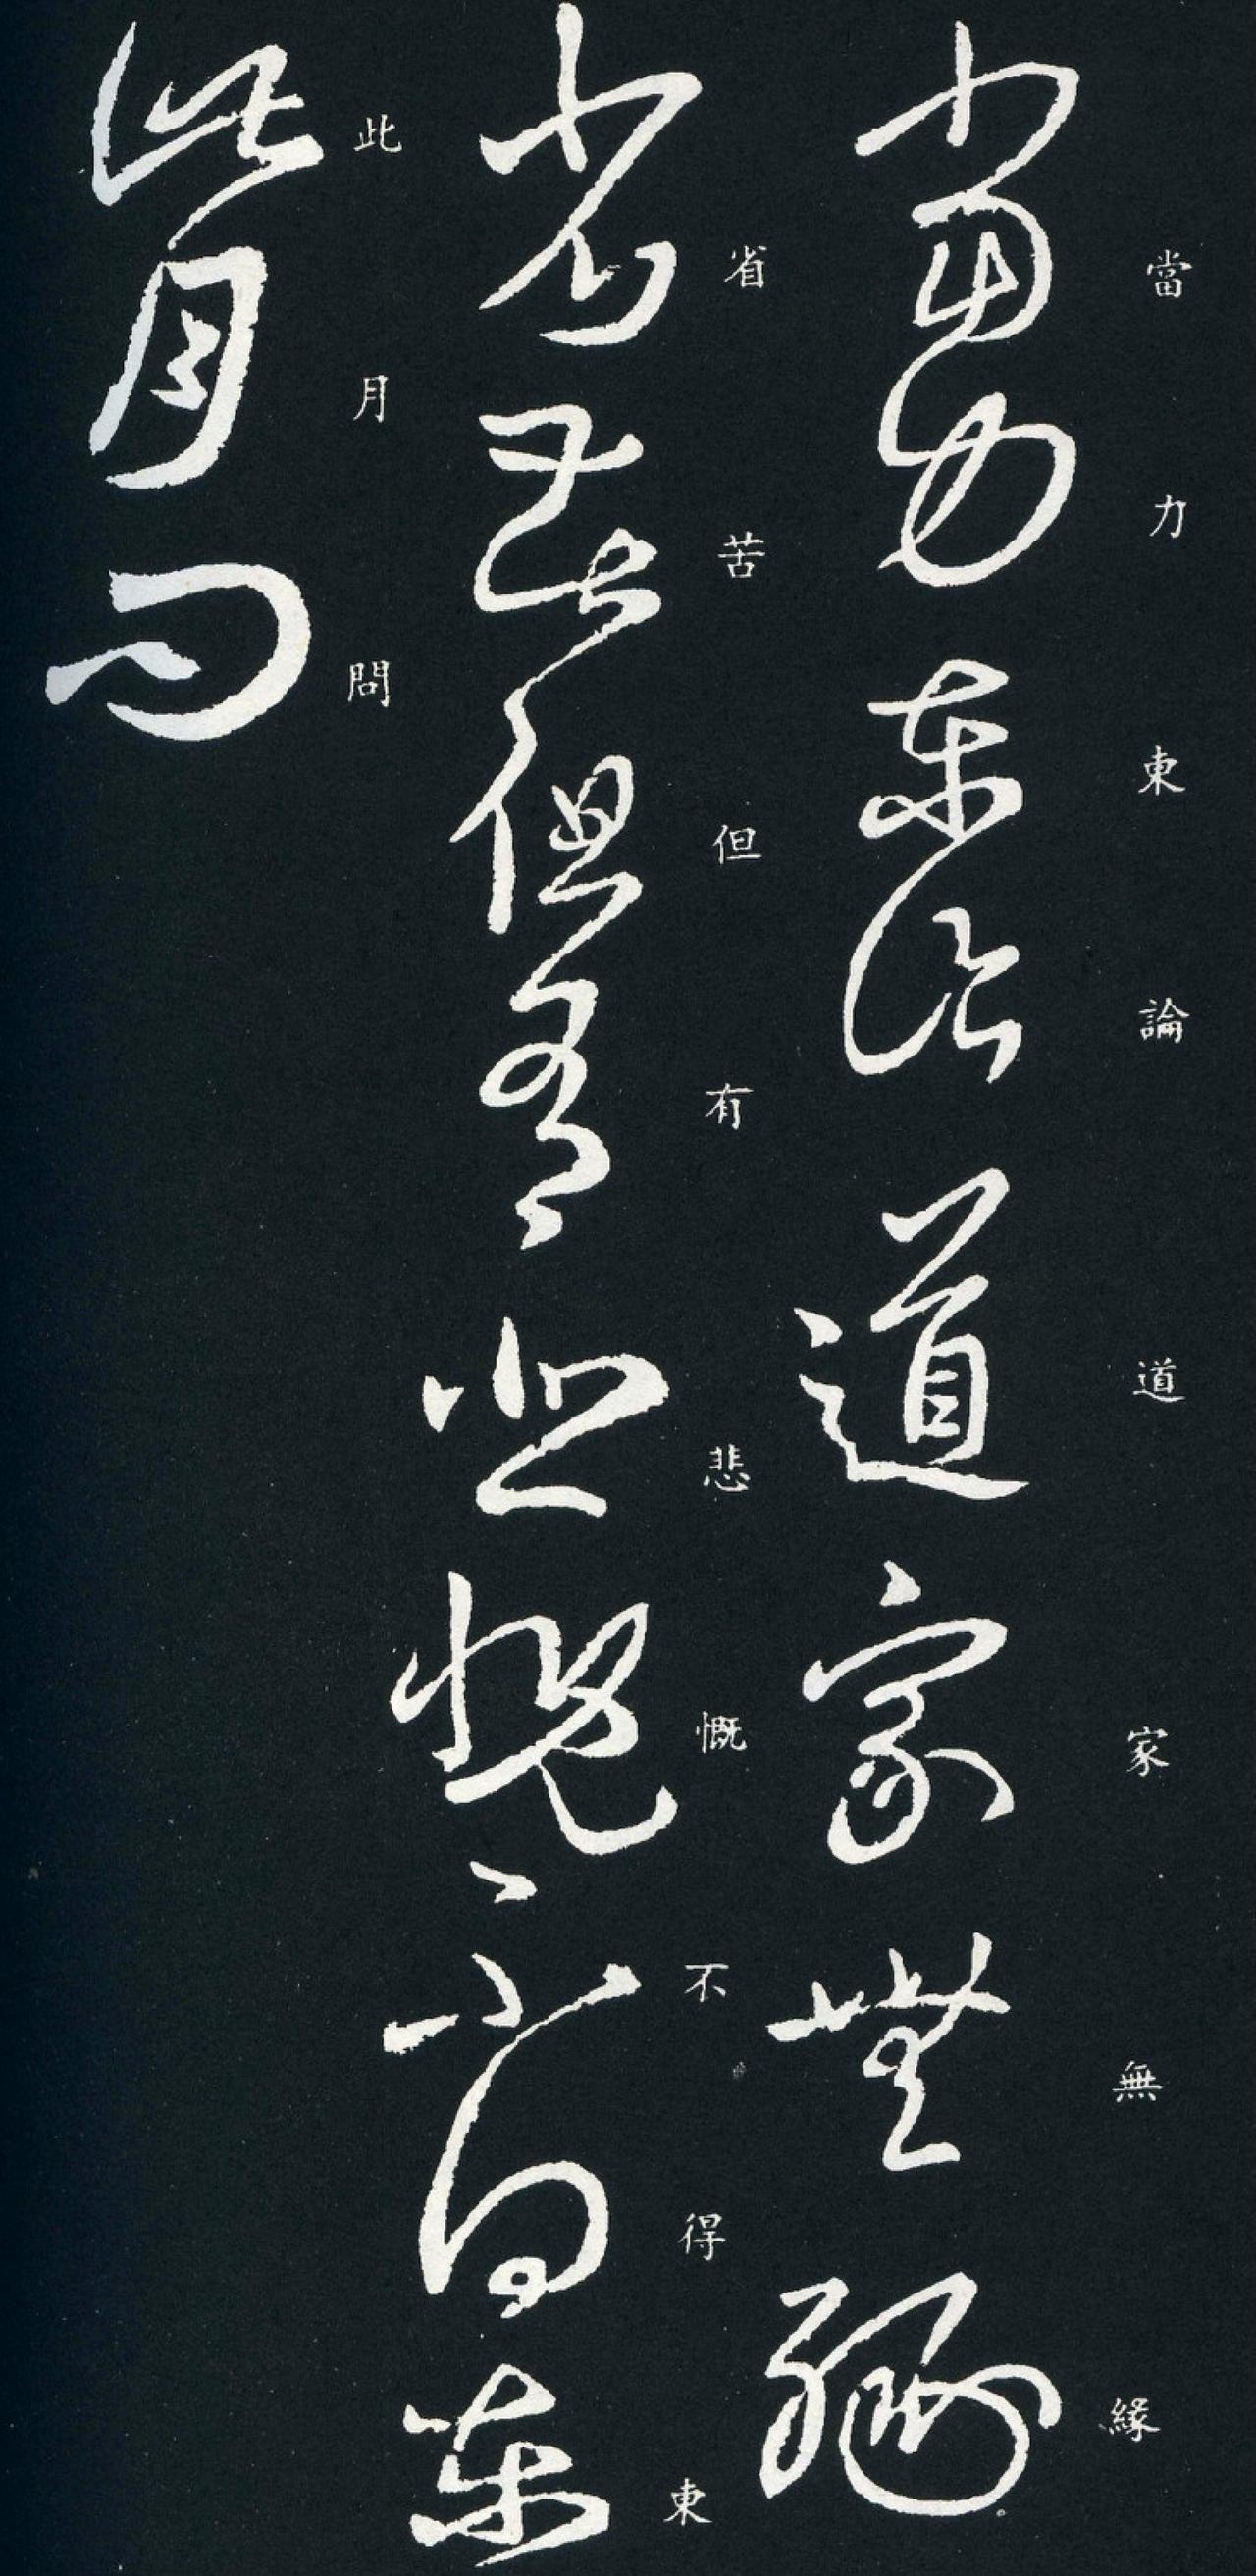 當力東論道家無緣
省苦但有悲慨不得東
此月問